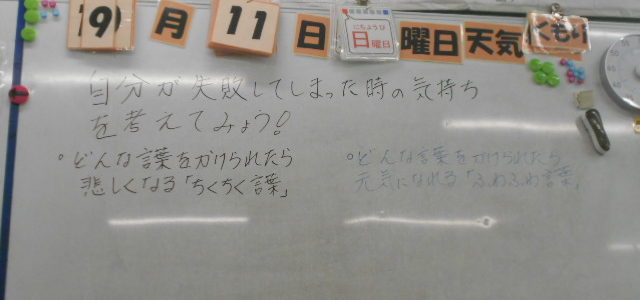 9 月 11 日 にちようび 日曜日 曜日 天気 くもり
自分が失敗してしまった時の気持ち
を考えてみょう!
。どんな言葉をかけられたら
悲しくなる「ちくちく言葉」
。どんな言葉をかけられたら
元気になれる「ふわふわ言葉」